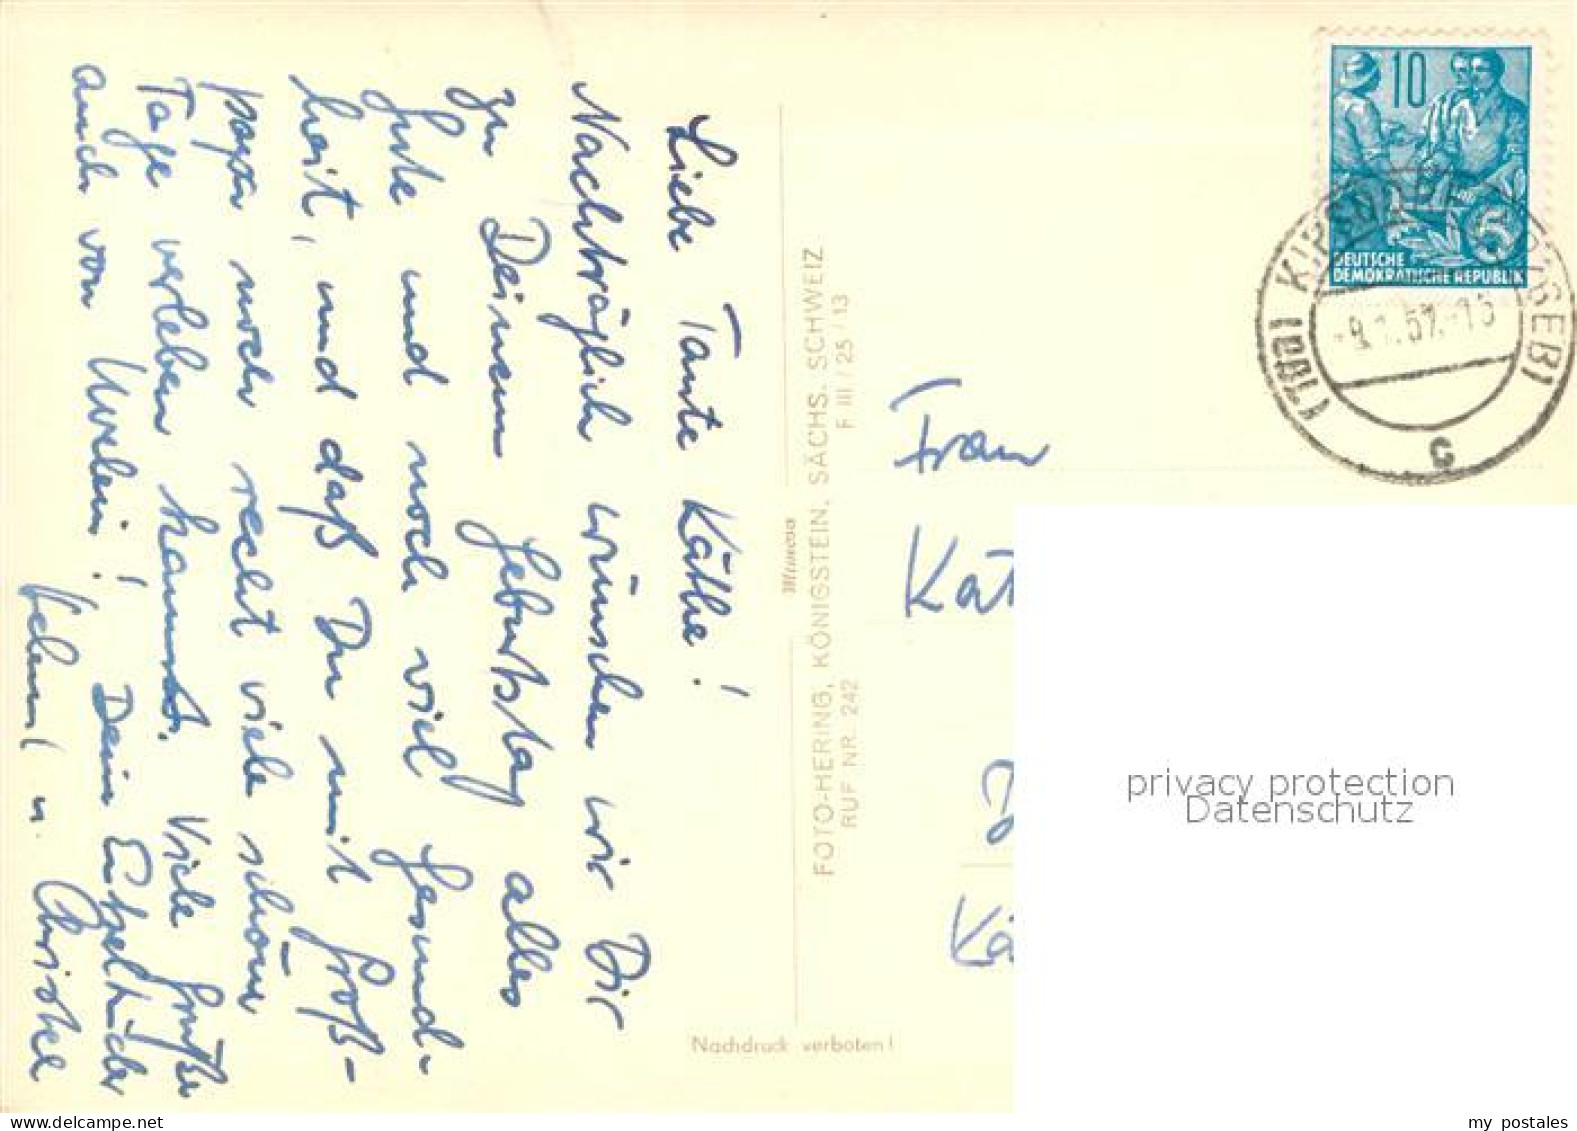 Liebe Tante Käthe!
Nachträglich wünschen wir Dir
zu Deinem Geburtstag alles
Gute und noch viel Gesund-
heit, und daß Du mit Groß-
papa noch recht viele schöne
Tage verleben kannst. Viele Grüße
auch von Uwelein! Dein
u. Christel
FOTO-HERING, KÖNIGSTEIN, SÄCHS. SCHWEIZ
RUF NR. 242
F III / 25 / 13
Mimosa
Nachdruck verboten!
10
5
DEUTSCHE
DEMOKRATISCHE REPUBLIK
c
Frau
Kät
Kä
privacy protection
Datenschutz
www.delcampe.net
my_postales